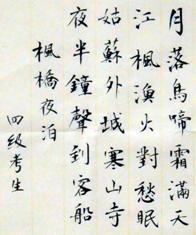 月落烏啼霜滿天
江楓漁火對愁眠
姑蘇外城寒山寺
夜半鐘聲到客船
楓橋夜泊
四级考生